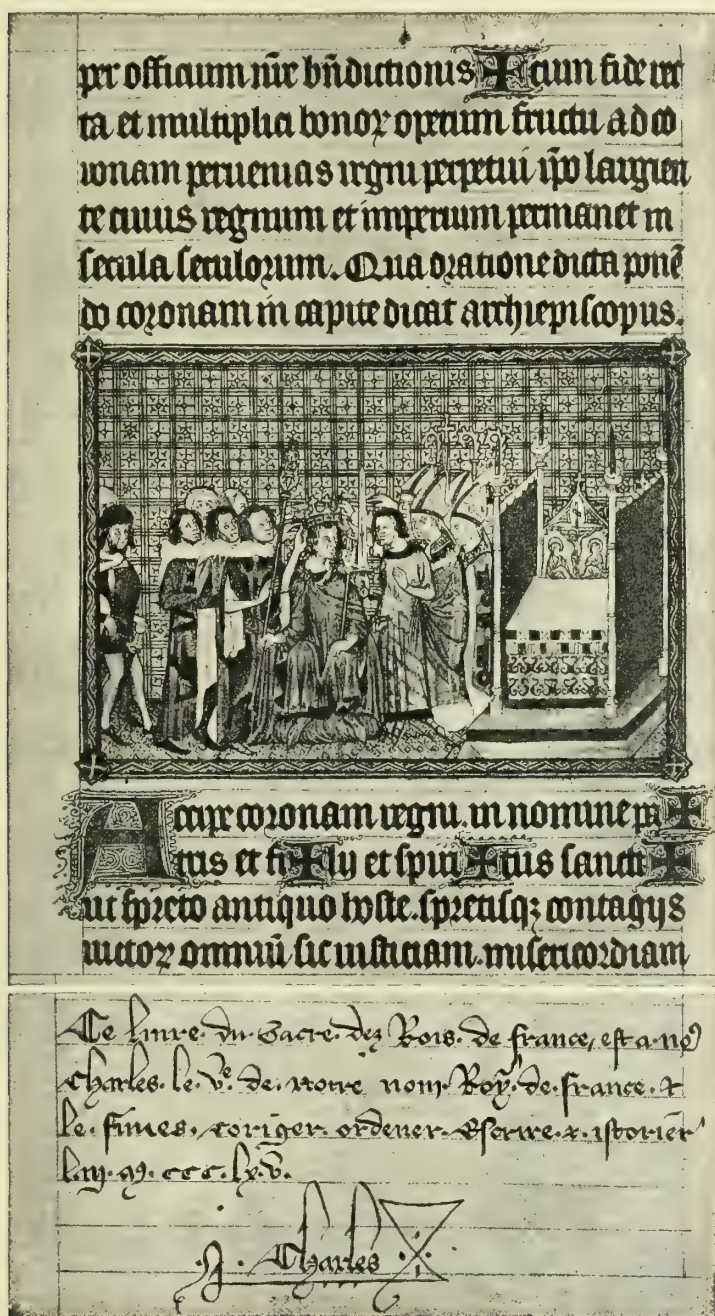 per officium nr̄e bn̄dictionis ✠ cum fide rec
ta et multiplici bonoꝝ operum fructu ad co
ronam peruenias regni perpetui ip̄o largien
te cuius regnum et imperium permanet in
secula seculorum. Qua oratione dicta ponē
do coronam in capite dicat archiepiscopus.
Accipe coronam regni. in nomine pa ✠
tris et fi ✠ lij et spiri ✠ tus sancti ✠
ut spreto antiquo hoste. spretisqꝫ contagijs
uictoꝝ omniū sic iusticiam. misericordiam
Ce liure du Sacre dez Rois. de france, est a no9
Charles. le. ve. de. notre nom. Roy. de. france. &
le. fimes. coriger. ordener. Escrire. &. istorier
lan. m. ccc. lx. v.
Charles